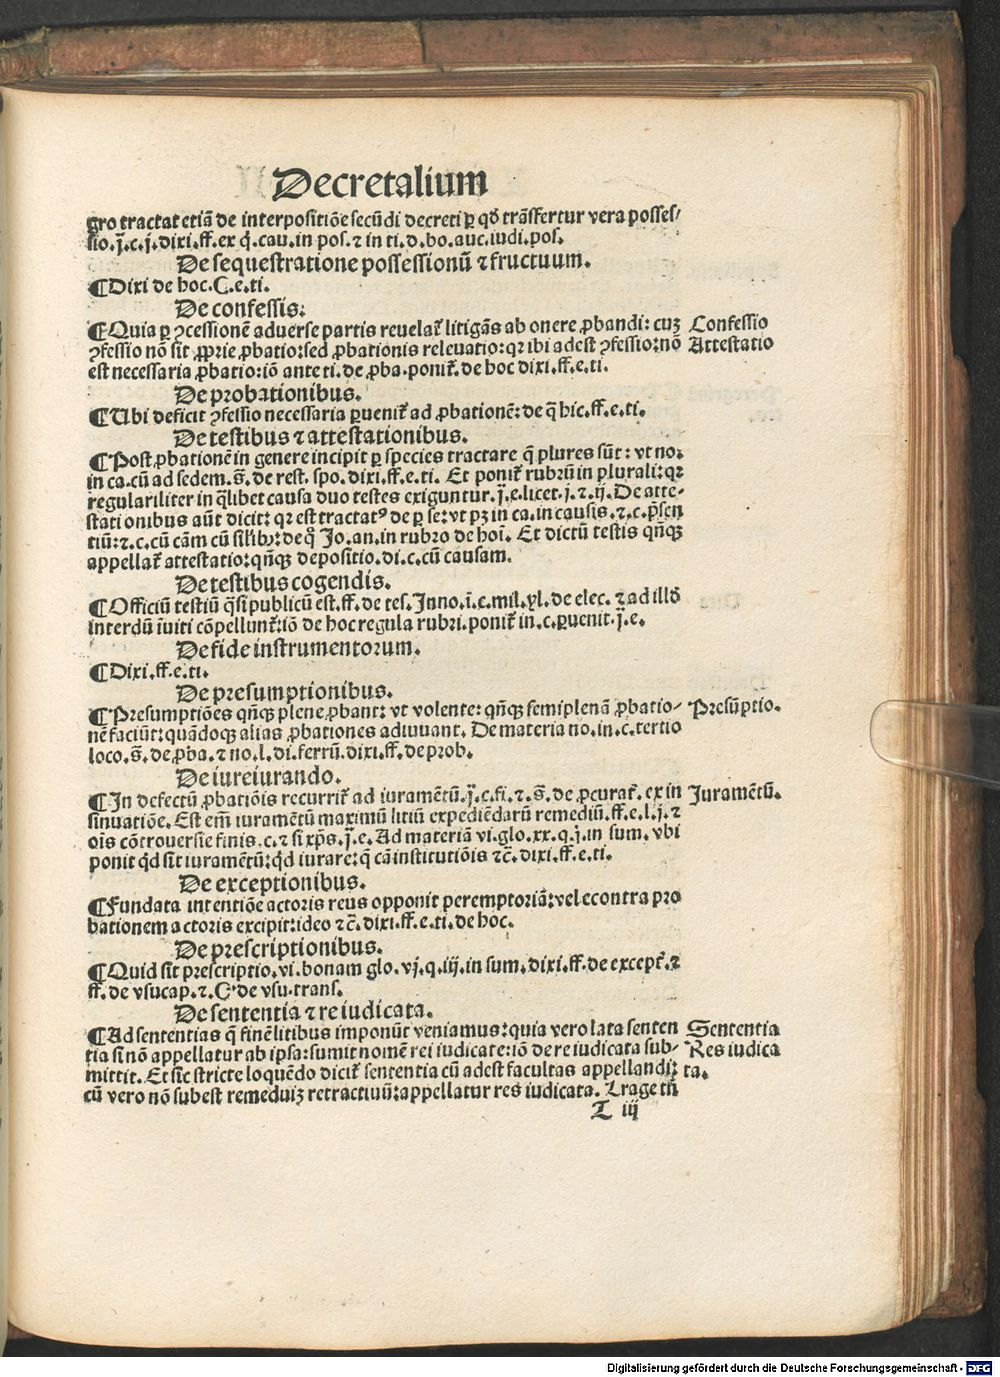 Decretalium
gro tractat etiā de interpositiōe secūdi decreti ꝑ qḋ trāsfertur vera posses⸗
sio.j̄.c.j.dixi.ff.ex q̄.cau.in pos.⁊ in ti.d.bo.auc.iudi.pos.
De sequestratione possessionū ⁊ fructuum.
¶Dixi de hoc.C.e.ti.
De confessis.
¶Quia ꝑ ꝯcessionē aduerse partis reuelat᷑ litigās ab onere ꝓbandi: cuꝫ
ꝯfessio nō sit ꝓprie ꝓbatio:sed ꝓbationis releuatio:qꝛ ibi adest ꝯfessio:nō
est necessaria ꝓbatio:iō ante ti.de ꝓba.ponit᷑.de hoc dixi.ff.e.ti.
Confessio
Attestatio
De probationibus.
¶Ubi deficit ꝯfessio necessaria ꝑuenit᷑ ad ꝓbationē:de q̄ hic.ff.e.ti.
De testibus ⁊ attestationibus.
¶Post ꝓbationē in genere incipit ꝑ species tractare q̄ plures sūt: vt no.
in ca.cū ad sedem.s̄.de rest.spo.dixi.ff.e.ti. Et ponit᷑ rubrū in plurali:qꝛ
regulariliter in q̄libet causa duo testes exiguntur.j̄.e.licet.j.⁊.ij. De atte⸗
stati onibus aūt dicit: qꝛ est tractatꝰ de ꝑ se:vt pꝫ in ca.in causis.⁊.c.p̄sen
tiū:⁊.c.cū cām cū silībꝰ:de q̊ Jo.an.in rubro de hoi. Et dictū testis qn̄qꝫ
appellat᷑ attestatio:qn̄qꝫ depositio.di.c.cū causam.
De testibus cogendis.
¶Officiū testiū q̄si publicū est.ff.de tes.Inno.ī.c.mil.yl.de elec.⁊ ad illḋ
interdū īuiti cōpellunt᷑:iō de hoc regula rubri.ponit᷑ in.c.ꝑuenit.j̄.e.
De fide instrumentorum.
¶Dixi.ff.e.ti.
De presumptionibus.
¶Presumptiōes qn̄qꝫ plene ꝓbant: vt volente: qn̄qꝫ semiplenā ꝓbatio⸗
nē faciūt:quādoqꝫ alias ꝓbationes adiuuant. De materia no.in.c.tertio
loco.s̄.de ꝓba.⁊ no.l.di.ferrū.dixi.ff.de prob.
Presūptio.
De iureiurando.
¶In defectū ꝓbatiōis recurrit᷑ ad iuramētū.j̄.c.fi.⁊.s̄.de ꝓcurat᷑.ex in
sinuatiōe. Est em̄ iuramētū maximū litiū expediēdarū remediū.ff.e.l.j.⁊
oīs cōtrouersie finis.c.⁊ si xp̄s.j̄.e. Ad materiā vi.glo.xx.q.j.in sum. vbi
ponit qd̄ sit iuramētū:qd̄ iurare:q̄ cā institutiōis ⁊c̄.dixi.ff.e.ti.
Iuramētū.
De exceptionibus.
¶Fundata intentiōe actoris reus opponit peremptoriā:vel econtra pro
bationem actoris excipit:ideo ⁊c̄.dixi.ff.e.ti.de hoc.
De prescriptionibus.
¶Quid sit prescriptio.vi.bonam glo.vj.q.iij.in sum.dixi.ff.de except᷑.⁊
ff.de vsucap.⁊.C.de vsu.trans.
De sententia ⁊ re iudicata.
¶Ad sententias q̄ finē litibus imponūt veniamus:quia vero lata senten
tia si nō appellatur ab ipsa:sumit nomē rei iudicate:iō de re iudicata sub⸗
mittit. Et sic stricte loquēdo dicit᷑ sententia cū adest facultas appellandi:
cū vero nō subest remeduiꝫ retractiuū:appellatur res iudicata. Trage tn̄
Sententia
Res iudica
ta.
T iij
Digitalisierung gefördert durch die Deutsche Forschungsgemeinschaft - DFG